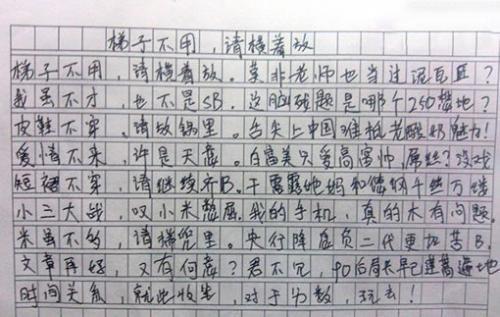 梯子不用，请横着放
梯子不用，请横着放。莫非老师也当过泥瓦匠？
我虽不才，也不是SB。这脑残题是哪个250整地？
皮鞋不穿，请放锅里。舌尖上中国难抵老酸奶魅力！
爱情不来，许是天意。白富美只爱高富帅，屌丝？没戏
短裙不穿，请继续齐B。干露露她妈和您炯千丝万缕
小三大战，叹小米憋屈。我的手机，真的木有问题。
米虽不多，请梯兜里。央行降息负二代更加苦B。
文章再好，又有何意？君不见，90后局长早已遍地
时间关系，就此收笔，对于分数，玩去！